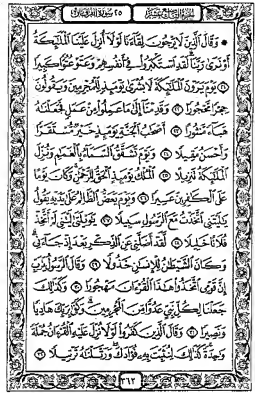 الجزء التاسع عشر ٢٥ سورة الفرقان
۞ وَقَالَ الَّذِينَ لَا يَرْجُونَ لِقَاءَنَا لَوْلَا أُنزِلَ عَلَيْنَا الْمَلَٰئِكَةُ
أَوْ نَرَىٰ رَبَّنَا لَقَدِ اسْتَكْبَرُوا فِي أَنفُسِهِمْ وَعَتَوْ عُتُوًّا كَبِيرًا
٢١ يَوْمَ يَرَوْنَ الْمَلَٰئِكَةَ لَا بُشْرَىٰ يَوْمَئِذٍ لِّلْمُجْرِمِينَ وَيَقُولُونَ
حِجْرًا مَّحْجُورًا ٢٢ وَقَدِمْنَا إِلَىٰ مَا عَمِلُوا مِنْ عَمَلٍ فَجَعَلْنَٰهُ
هَبَاءً مَّنثُورًا ٢٣ أَصْحَٰبُ الْجَنَّةِ يَوْمَئِذٍ خَيْرٌ مُّسْتَقَرًّا
وَأَحْسَنُ مَقِيلًا ٢٤ وَيَوْمَ تَشَقَّقُ السَّمَاءُ بِالْغَمَٰمِ وَنُزِّلَ
الْمَلَٰئِكَةُ تَنزِيلًا ٢٥ الْمُلْكُ يَوْمَئِذٍ الْحَقُّ لِلرَّحْمَٰنِ وَكَانَ يَوْمًا
عَلَى الْكَٰفِرِينَ عَسِيرًا ٢٦ وَيَوْمَ يَعَضُّ الظَّالِمُ عَلَىٰ يَدَيْهِ يَقُولُ
يَٰلَيْتَنِي اتَّخَذْتُ مَعَ الرَّسُولِ سَبِيلًا ٢٧ يَٰوَيْلَتَىٰ لَيْتَنِي لَمْ أَتَّخِذْ
فُلَانًا خَلِيلًا ٢٨ لَّقَدْ أَضَلَّنِي عَنِ الذِّكْرِ بَعْدَ إِذْ جَاءَنِي
وَكَانَ الشَّيْطَٰنُ لِلْإِنسَٰنِ خَذُولًا ٢٩ وَقَالَ الرَّسُولُ يَٰرَبِّ
إِنَّ قَوْمِي اتَّخَذُوا هَٰذَا الْقُرْءَانَ مَهْجُورًا ٣٠ وَكَذَٰلِكَ
جَعَلْنَا لِكُلِّ نَبِيٍّ عَدُوًّا مِّنَ الْمُجْرِمِينَ وَكَفَىٰ بِرَبِّكَ هَادِيًا
وَنَصِيرًا ٣١ وَقَالَ الَّذِينَ كَفَرُوا لَوْلَا نُزِّلَ عَلَيْهِ الْقُرْءَانُ جُمْلَةً
وَٰحِدَةً كَذَٰلِكَ لِنُثَبِّتَ بِهِ فُؤَادَكَ وَرَتَّلْنَٰهُ تَرْتِيلًا ٣٢
٣٦٢